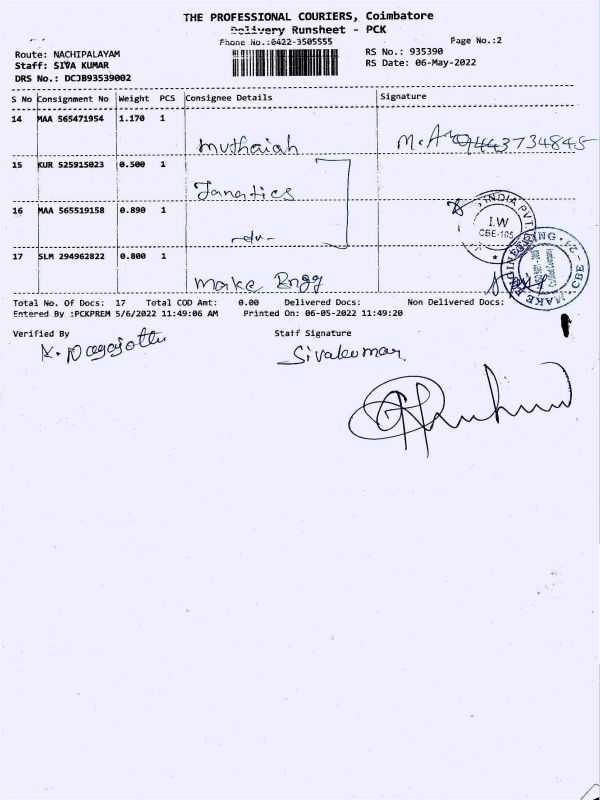 THE PROFESSIONAL COURIERS, Coimbatore
Delivery Runsheet - PCK
Phone No.:0422-3505555
Page No.:2
Route: NACHIPALAYAM
RS No.: 935390
Staff: SIVA KUMAR
RS Date: 06-May-2022
DRS No.: DCJB93539002
S No Consignment No Weight PCS Consignee Details Signature
14 MAA 565471954 1.170 1
muthaiah 9443734845
15 KUR 525915023 0.500 1
16 MAA 565519158 0.890 1
-du-
INDIA PVT
I.W
CBE-105
17 SLM 294962822 0.800 1
Make Engg
MAKE ENGINEERING
CBE - 21
Total No. Of Docs: 17 Total COD Amt: 0.00 Delivered Docs: Non Delivered Docs:
Entered By :PCKPREM 5/6/2022 11:49:06 AM Printed On: 06-05-2022 11:49:20
Verified By Staff Signature
Sivakumar